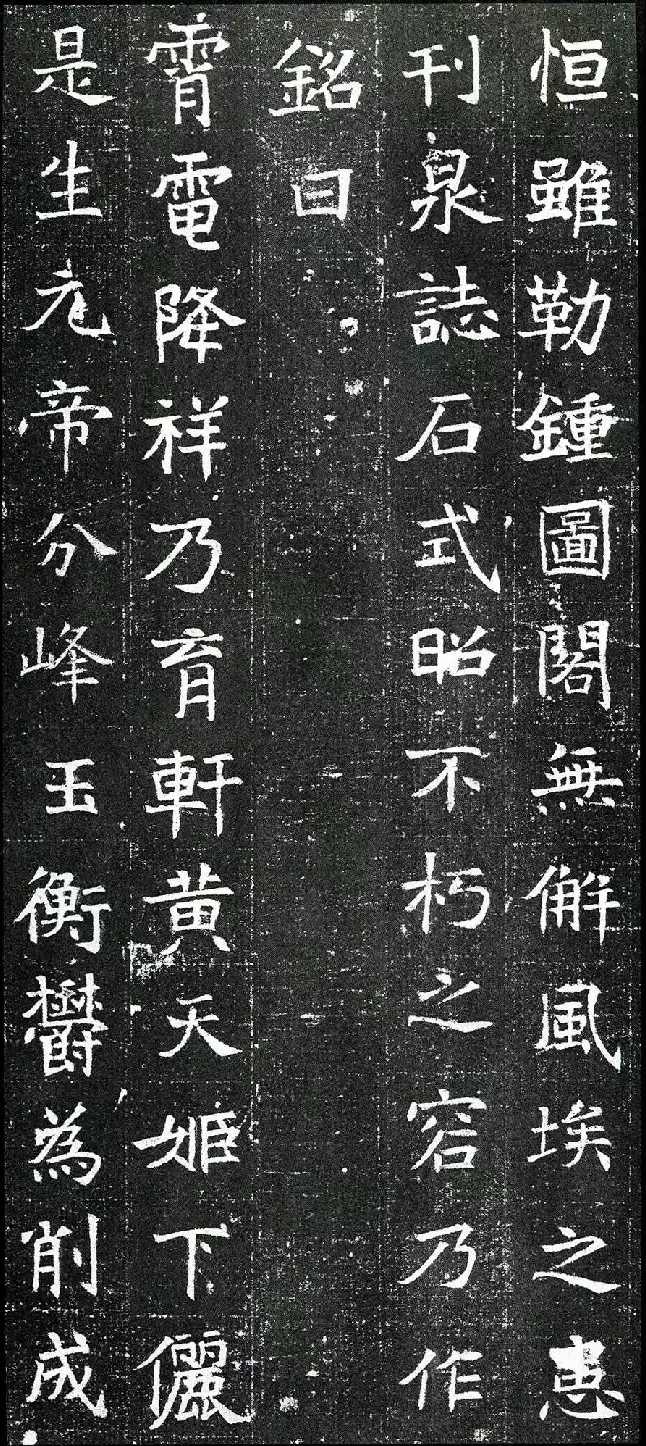 恒雖勒鍾圖閣無解風埃之患
刊泉誌石式昭不朽之容乃作
銘曰
霄電降祥乃育軒黃天姬下儷
是生元帝分峰玉衡欝為削成